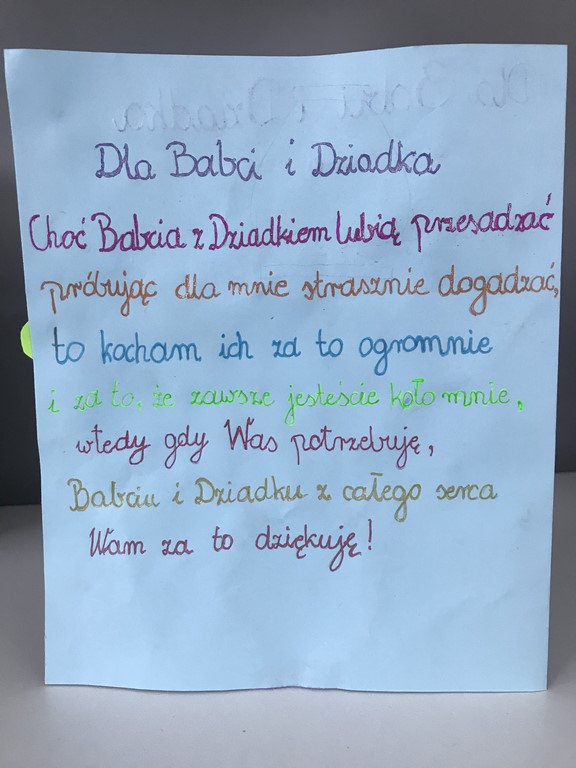 Dla Babci i Dziadka
Dla Babci i Dziadka
Choć Babcia z Dziadkiem lubią przesadzać
próbując dla mnie strasznie dogadzać,
to kocham ich za to ogromnie
i za to, że zawsze jesteście koło mnie,
wtedy gdy Was potrzebuję,
Babciu i Dziadku z całego serca
Wam za to dziękuję!